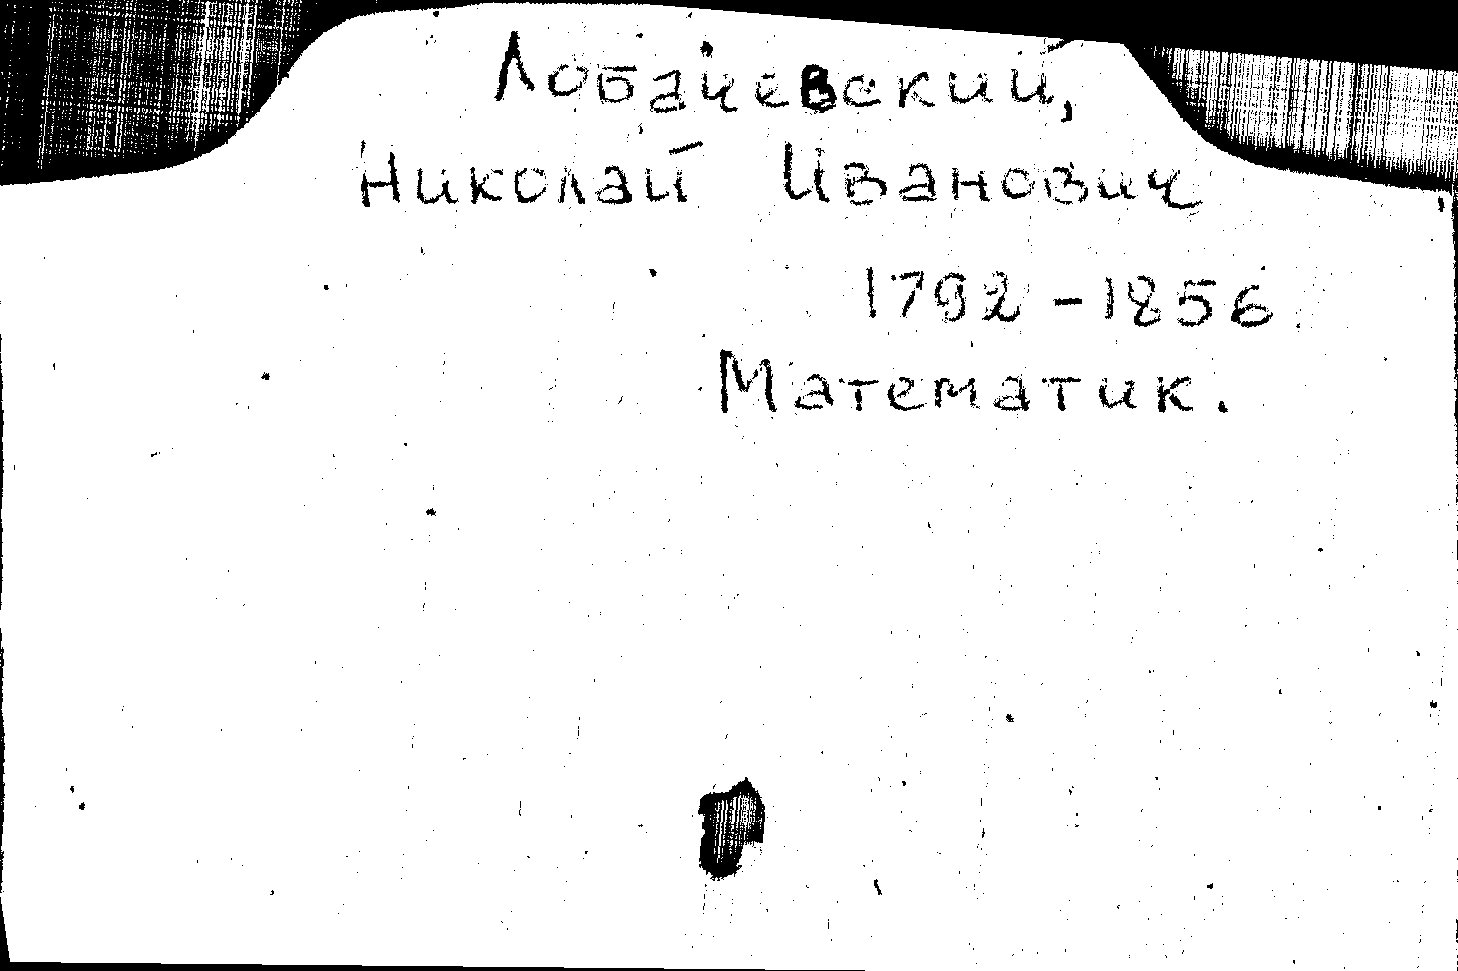 Лобачевский,
Николай Иванович
1792-1856
Математик.